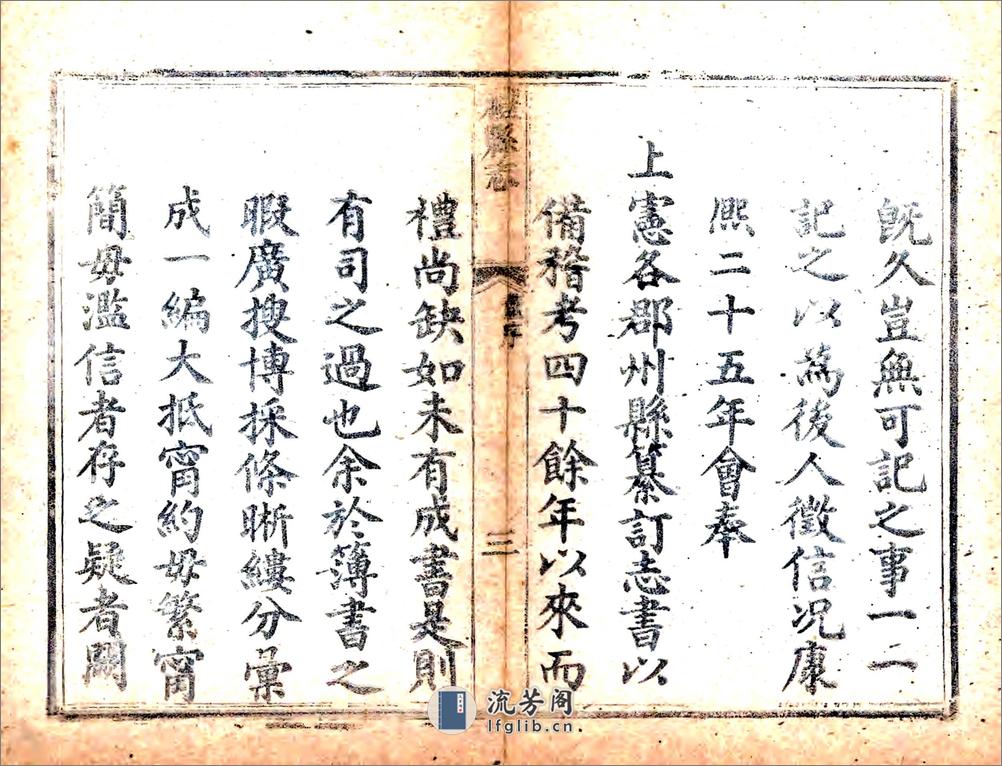 既久豈無可記之事一二
記之以爲後人徵信况康
熙二十五年會奉
上憲各郡州縣纂訂志書以
備稽考四十餘年以來而
縣志
三
禮尚缺如未有成書是則
有司之過也余於簿書之
暇廣搜博採條晰縷分彙
成一編大抵寧約毋繁寧
簡毋濫信者存之疑者闕
流芳阁
lfglib.cn